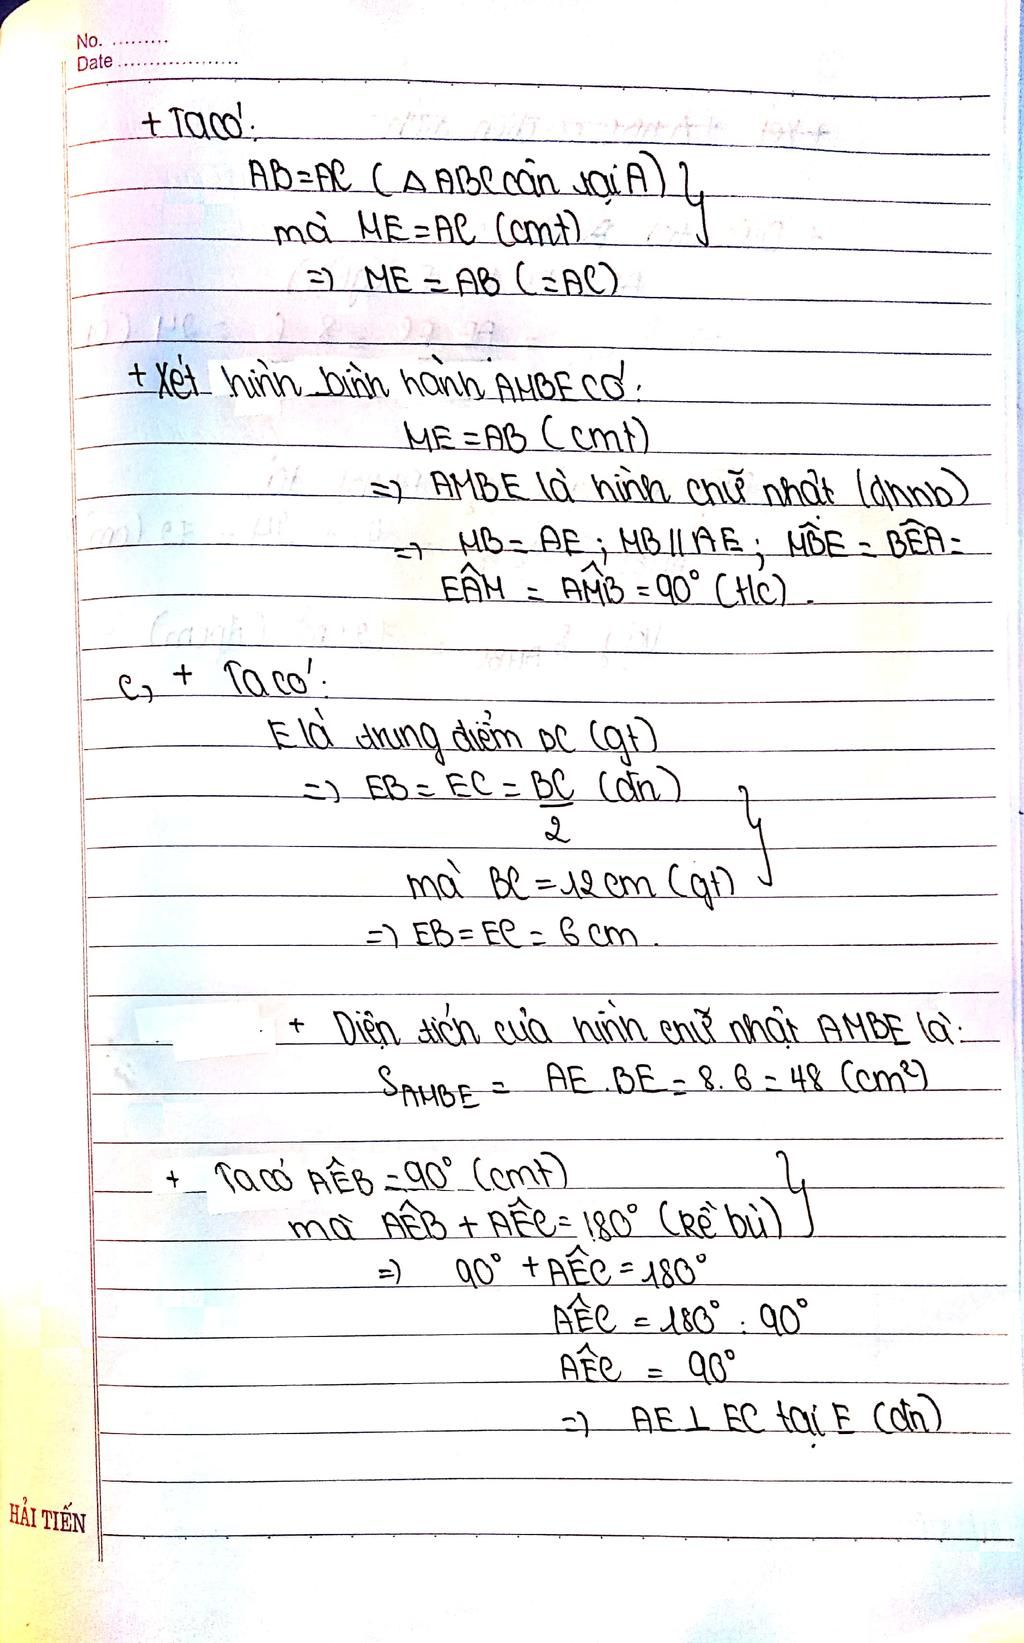 No. .........
Date ...................
+ Ta có:
AB = AC (△ ABC cân tại A) }
mà ME = AC (cmt)
=> ME = AB (=AC)
+ Xét hình bình hành AMBE có:
ME = AB (cmt)
=> AMBE là hình chữ nhật (dhnb)
=> MB = AE ; MB // AE ; MB̂E = BÊA =
EÂM = AM̂B = 90° (t/c).
c, + Ta có:
E là trung điểm BC (gt)
=> EB = EC = BC/2 (đn) }
mà BC = 12 cm (gt)
=> EB = EC = 6 cm.
+ Diện tích của hình chữ nhật AMBE là:
S_AMBE = AE . BE = 8 . 6 = 48 (cm²)
+ Ta có AÊB = 90° (cmt) }
mà AÊB + AÊC = 180° (kề bù)
=> 90° + AÊC = 180°
AÊC = 180° : 90°
AÊC = 90°
=> AE ⊥ EC tại E (đn)
HẢI TIẾN